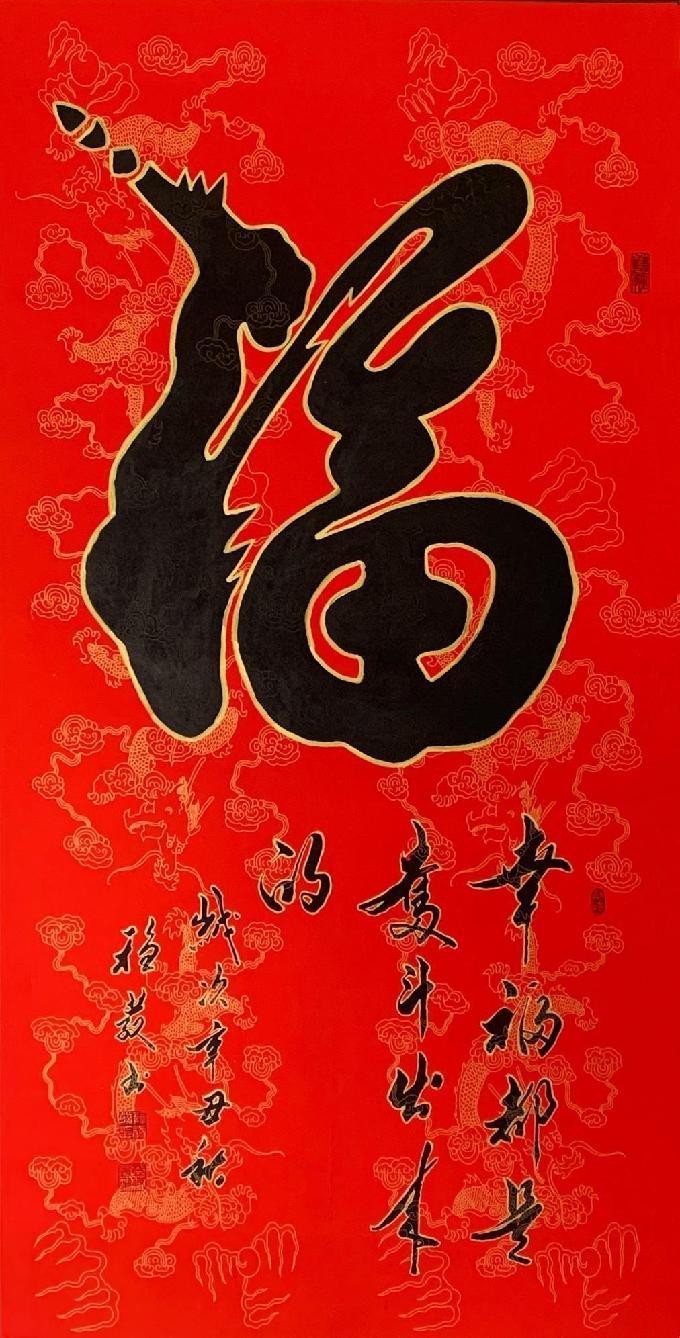 福
幸福都是
奋斗出来
的
岁次辛丑秋
书